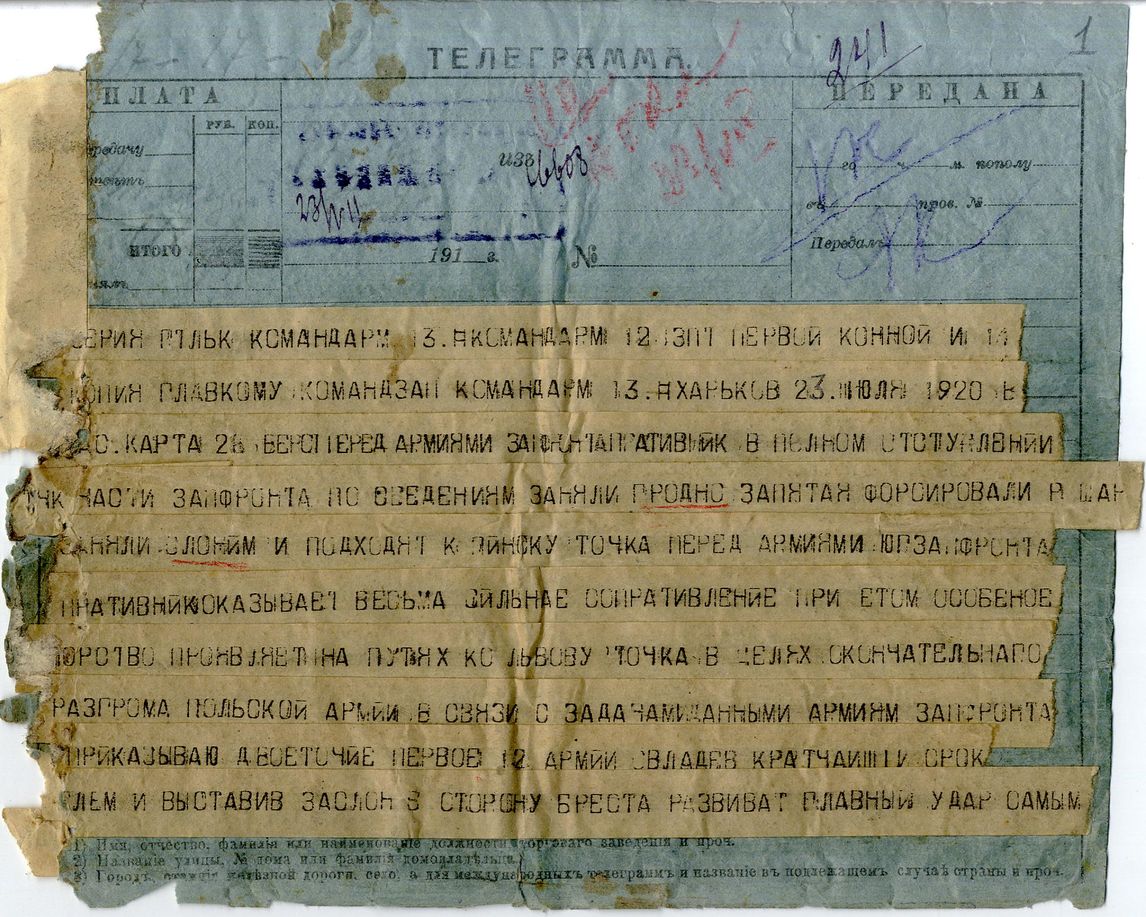 241
1
ТЕЛЕГРАММА.
ПЛАТА
ПЕРЕДАНА
РУБ. КОП.
изъ
го ч. м. пополу
въ пров. №
ИТОГО
Передалъ
191 г. №
СЕРИЯ КОМАНДАРМ 13. КОМАНДАРМ 12 ПЕРВОЙ КОННОЙ И 14
КОПИЯ ГЛАВКОМУ КОМАНДЗАП КОМАНДАРМ 13. ХАРЬКОВ 23 ИЮЛЯ 1920 В
КАРТА ВЕРСТ ПЕРЕД АРМИЯМИ В ПОЛНОМ ОТСТУПЛЕНИИ
ТЧК ЧАСТИ ЗАПФРОНТА ПО СВЕДЕНИЯМ ЗАНЯЛИ ГРОДНО ЗАПЯТАЯ ФОРСИРОВАЛИ Р ШАР
ЗАНЯЛИ СЛОНИМ И ПОДХОДЯТ К ПИНСКУ ТОЧКА ПЕРЕД АРМИЯМИ ЮГЗАПФРОНТА
ПРАТИВНИК ОКАЗЫВАЕТ ВЕСЬМА СИЛЬНАЕ СОПРАТИВЛЕНИЕ ПРИ ЕТОМ ОСОБЕНОЕ
ПОРСТВО ПРОЯВЛЯЕТ НА ПУТЯХ КО ЛЬВОВУ ТОЧКА В ЦЕЛЯХ ОКОНЧАТЕЛЬНАГО
РАЗГРОМА ПОЛЬСКОЙ АРМИИ В СВЯЗИ С ЗАДАЧАМИ ДАННЫМИ АРМИЯМ ЗАПФРОНТА
ПРИКАЗЫВАЮ ДВОЕТОЧИЕ ПЕРВОЕ 12 АРМИИ ОВЛАДЕВ КРАТЧАИШИИ СРОК
ВЫСТАВИВ ЗАСЛОН В СТОРОНУ БРЕСТА РАЗВИВАТ ГЛАВНЫЙ УДАР САМЫМ
1) Имя, отчество, фамилія или наименованіе должности торговаго заведенія и проч.
2) Названіе улицы, № дома или фамилія домовладѣльца.
3) Городъ, станція желѣзной дороги, село, а для международныхъ телеграммъ и названіе въ подлежащемъ случаѣ страны и проч.